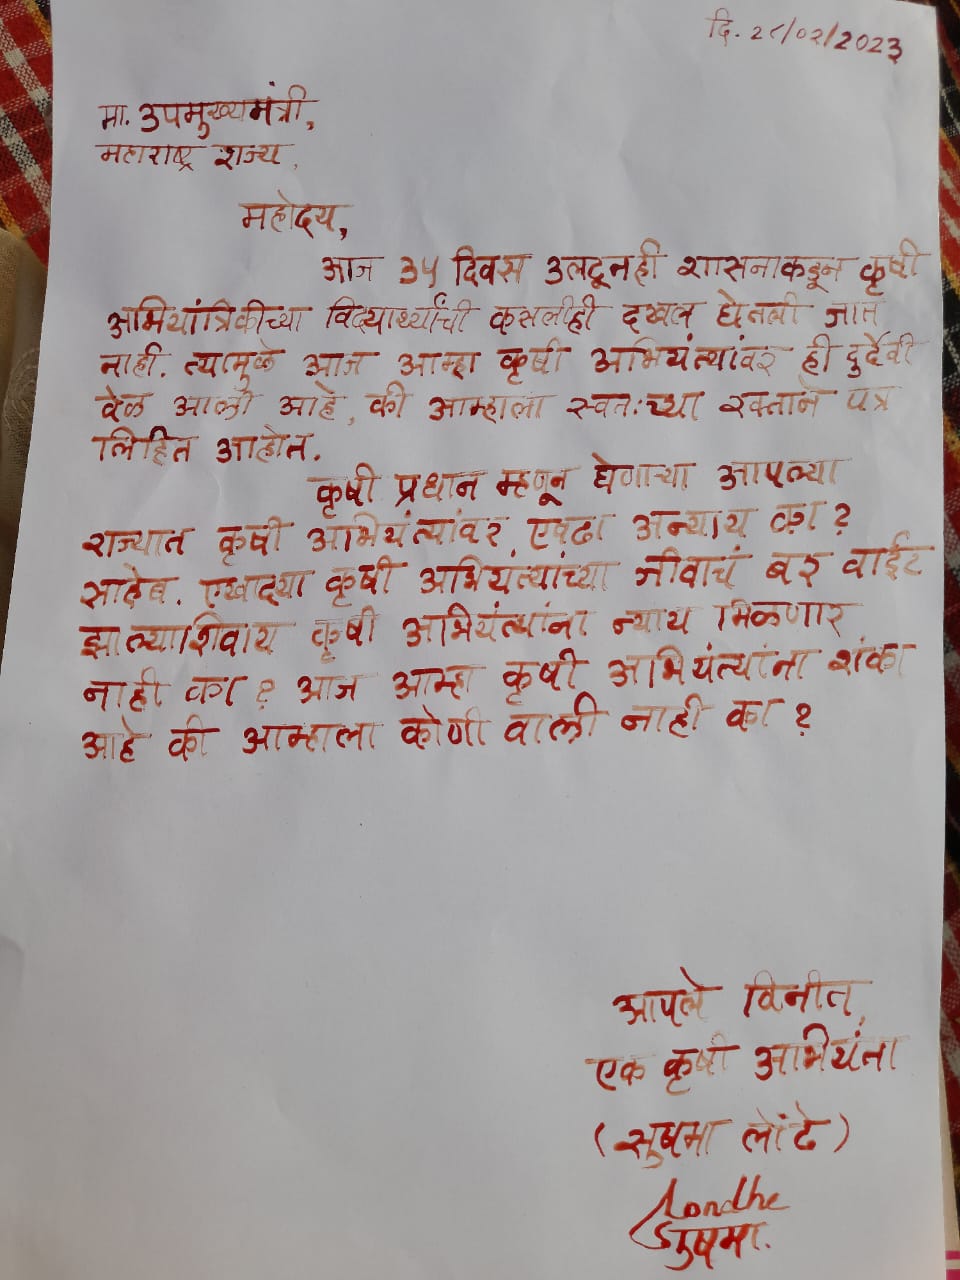 दि. २८/०२/2023
मा. उपमुख्यमंत्री,
महाराष्ट्र राज्य,
महोदय,
आज ३५ दिवस उलटूनही शासनाकडून कृषी
अभियांत्रिकीच्या विद्यार्थ्यांची कसलीही दखल घेतली जात
नाही. त्यामुळे आज आम्हा कृषी अभियंत्यांवर ही दुर्दैवी
वेळ आली आहे, की आम्हाला स्वतःच्या रक्ताने पत्र
लिहित आहोत.
कृषी प्रधान म्हणून घेणाऱ्या आपल्या
राज्यात कृषी अभियंत्यांवर, एवढा अन्याय का?
साहेब. एखाद्या कृषी अभियंत्यांच्या जीवाचं बरं वाईट
झाल्याशिवाय कृषी अभियंत्यांना न्याय मिळणार
नाही का? आज आम्हा कृषी अभियंत्यांना शंका
आहे की आम्हाला कोणी वाली नाही का?
आपले विनीत,
एक कृषी अभियंता
(सुषमा लोंढे)
Londhe
सुषमा.